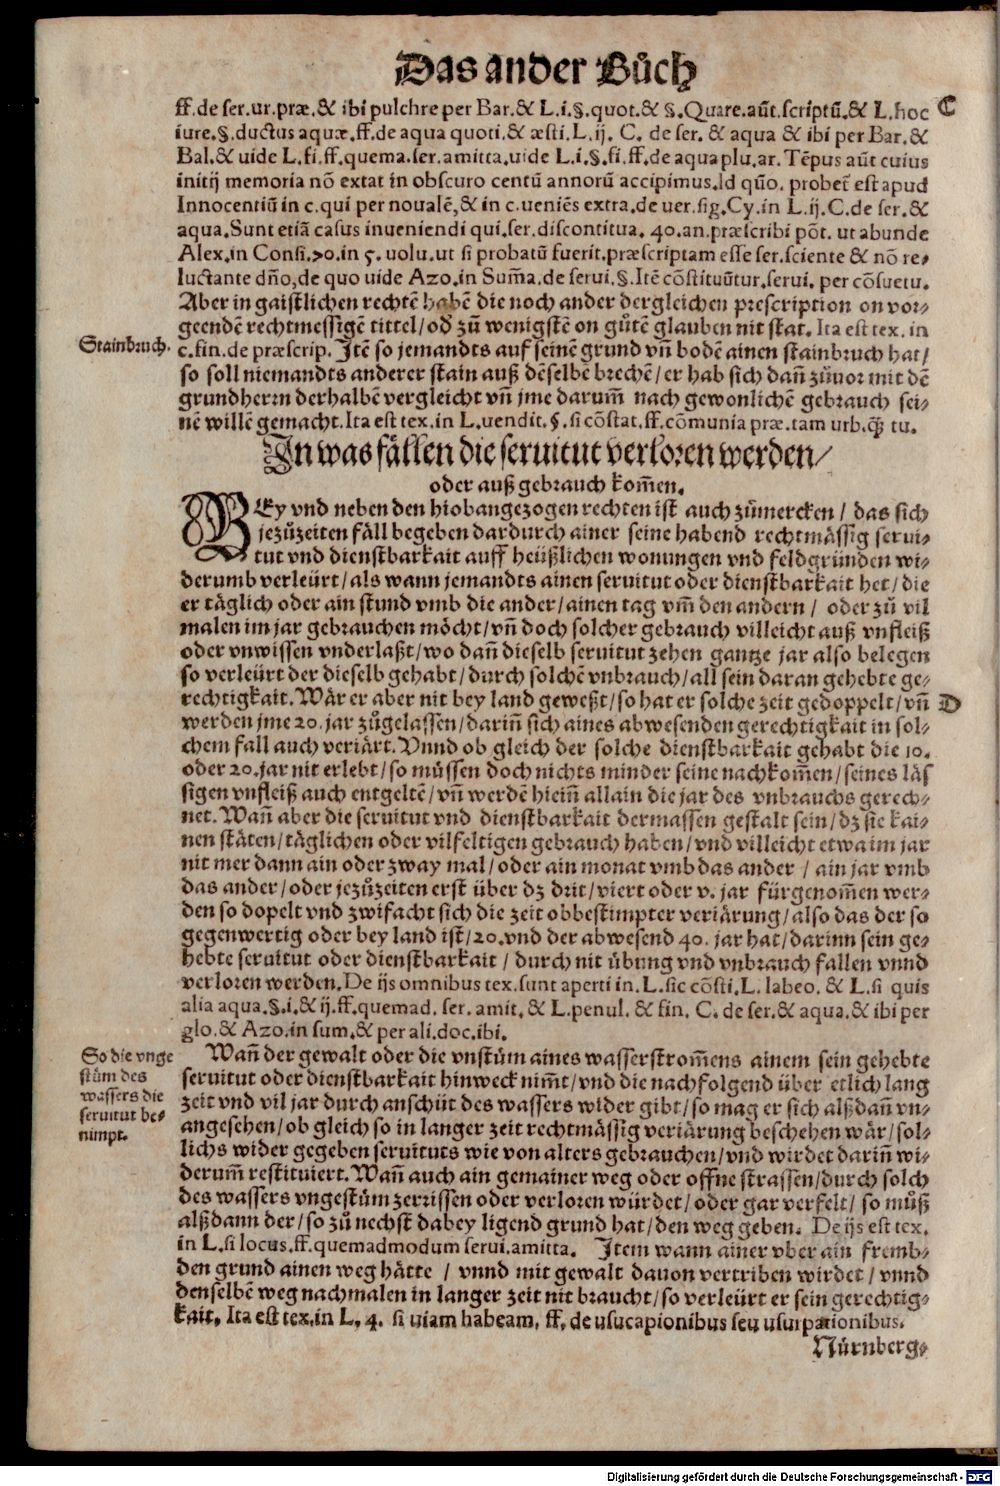 Das ander Bůch
ff.de ser.ur.præ.& ibi pulchre per Bar.& L.i.§.quot.& §.Quare.aũt.scriptũ.& L.hoc
C
iure.§.ductus aquæ.ff.de aqua quoti.& æsti.L.ij. C. de ser. & aqua & ibi per Bar.&
Bal.& uide L.fi.ff.quema.ser.amitta.uide L.i.§.fi.ff.de aqua plu.ar. Tẽpus aũt cuius
initij memoria nõ extat in obscuro centũ annorũ accipimus.Id qũo. probet̃ est apud
Innocentiũ in c.qui per noualẽ,& in c.ueniẽs extra.de uer.sig.Cy.in L.ij.C.de ser.&
aqua.Sunt etiã casus inueniendi qui.ser.discontitua. 40.an.præscribi põt. ut abunde
Alex.in Consi.70.in 5.uolu.ut si probatũ fuerit.præscriptam esse ser.sciente & nõ re⸗
luctante dño,de quo uide Azo.in Sum̃a.de serui.§.Itẽ cõstituũtur.serui. per cõsuetu.
Aber in gaistlichen rechtẽ habẽ die noch ander dergleichen prescription on vor⸗
geendẽ rechtmessigẽ tittel/od̃ zů wenigstẽ on gůtẽ glauben nit stat. Ita est tex. in
Stainbruch.
c.fin.de præscrip. Itẽ so jemandts auf seinẽ grund vñ bodẽ ainen stainbruch hat/
so soll niemandts anderer stain auß dẽselbẽ brechẽ/er hab sich dañ zůuor mit dẽ
grundherrn derhalbẽ vergleicht vñ jme darum̃ nach gewonlichẽ gebrauch sei⸗
nẽ willẽ gemacht.Ita est tex.in L.uendit.§.si cõstat.ff.cõmunia præ.tam urb.q̃ȝ tu.
In was fällen die seruitut verloren werden/
oder auß gebrauch kom̃en.
BEy vnd neben den hiobangezogen rechten ist auch zůmercken / das sich
jezůzeiten fäll begeben dardurch ainer seine habend rechtmässig serui⸗
tut vnd dienstbarkait auff heüßlichen wonungen vnd feldgründen wi⸗
derumb verleürt/als wann jemandts ainen seruitut oder dienstbarkait het/die
er täglich oder ain stund vmb die ander/ainen tag vm̃ den andern / oder zů vil
malen im jar gebrauchen möcht/vñ doch solcher gebrauch villeicht auß vnfleiß
oder vnwissen vnderlaßt/wo dañ dieselb seruitut zehen gantze jar also belegen
so verleürt der dieselb gehabt/durch solchẽ vnbrauch/all sein daran gehebte ge⸗
rechtigkait.Wär er aber nit bey land geweßt/so hat er solche zeit gedoppelt/vñ
D
werden jme 20.jar zůgelassen/dariñ sich aines abwesenden gerechtigkait in sol⸗
chem fall auch veriärt.Vnnd ob gleich der solche dienstbarkait gehabt die 10.
oder 20.jar nit erlebt/so müssen doch nichts minder seine nachkom̃en/seines läs
sigen vnfleiß auch entgeltẽ/vñ werdẽ hieiñ allain die jar des vnbrauchs gerech⸗
net.Wañ aber die seruitut vnd dienstbarkait dermassen gestalt sein/dz sie kai⸗
nen stäten/täglichen oder vilfeltigen gebrauch haben/vnd villeicht etwa im jar
nit mer dann ain oder zway mal/oder ain monat vmb das ander / ain jar vmb
das ander/oder jezůzeiten erst über dz drit/viert oder v. jar fürgenom̃en wer⸗
den so dopelt vnd zwifacht sich die zeit obbestimpter veriärung/also das der so
gegenwertig oder bey land ist/20.vnd der abwesend 40. jar hat/darinn sein ge⸗
hebte seruitut oder dienstbarkait / durch nit übung vnd vnbrauch fallen vnnd
verloren werden.De ijs omnibus tex.sunt aperti in.L.sic cõsti.L. labeo. & L.si quis
alia aqua.§.i.& ij.ff.quemad. ser. amit. & L.penul. & fin. C. de ser.& aqua.& ibi per
glo.& Azo.in sum.& per ali.doc.ibi.
So die vnge
stüm des
wassers die
seruitut be⸗
nimpt.
Wañ der gewalt oder die vnstüm aines wasserstrom̃ens ainem sein gehebte
seruitut oder dienstbarkait hinweck nim̃t/vnd die nachfolgend über etlich lang
zeit vnd vil jar durch anschüt des wassers wider gibt/so mag er sich alßdañ vn⸗
angesehen/ob gleich so in langer zeit rechtmässig veriärung beschehen wär/sol⸗
lichs wider gegeben seruituts wie von alters gebrauchen/vnd wirdet dariñ wi⸗
derum̃ restituiert.Wañ auch ain gemainer weg oder offne strassen/durch solch
des wassers vngestüm zerrissen oder verloren würdet/oder gar verfelt/ so můß
alßdann der/so zů nechst dabey ligend grund hat/den weg geben. De ijs est tex.
in L.si locus.ff.quemadmodum serui.amitta. Item wann ainer vber ain fremb⸗
den grund ainen weg hätte / vnnd mit gewalt dauon vertriben wirdet/vnnd
denselbẽ weg nachmalen in langer zeit nit braucht/so verleürt er sein gerechtig⸗
kait. Ita est tex.in L. 4. si uiam habeam. ff. de usucapionibus seu usurpationibus.
Nürnberg⸗
Digitalisierung gefördert durch die Deutsche Forschungsgemeinschaft - DFG